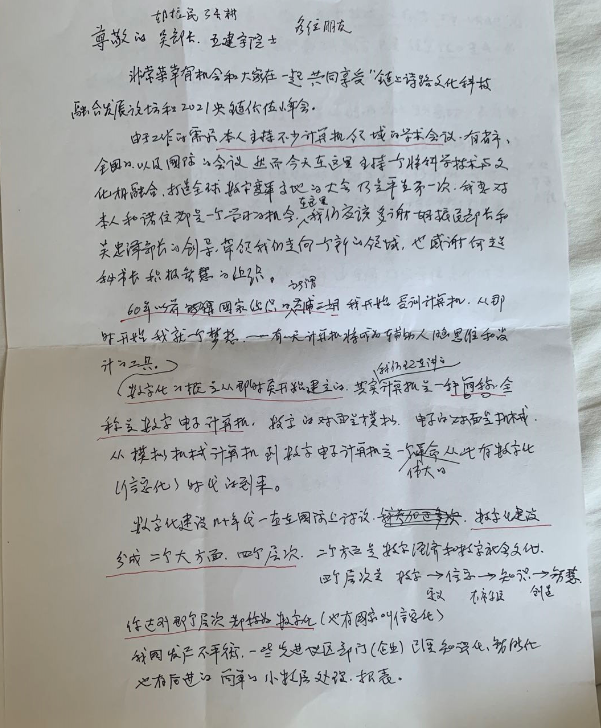 胡振民
尊敬的 吴部长. 王建宇院士 各位朋友
非常荣幸有机会和大家在一起共同享受"链上诗路文化科技
融合发展论坛和2021央链价值峰会.
由于工作的需要本人主持不少计算机领域的学术会议. 有省市,
全国的以及国际的会议. 然而今天在这里主持一个将科学技术与文
化相融合, 打造全球数字变革高地的大会乃生平第一次. 我想对
本人和诸位都是一个学习的机会, 在这里我们应该感谢胡振民部长和
吴忠泽部长的倡导, 带领我们走向一个新的领域, 也感谢何超
秘书长积极热情的组织.
60年以前 国家 我开始学习计算机. 从那
时开始我就一个梦想. ——有一天计算机将成为辅助人的思维和设
计的工具.
(数字化的概念从那时真开始建立的. 其实我们现在讲的计算机是一种简称. 全
称是数字电子计算机, 数字的对面是模拟. 电子的对面是机械.
从模拟机械计算机到数字电子计算机是一个伟大的革命从此有数字化
(信息化) 时代的到来.
数字化建设几十年代一直在国际上讨论. 数字化建设
分成二个大方面. 四个层次. 二个方面是数字经济和数字社会文化.
四个层次是 数字→信息→知识→智慧
定义 创造
你达到那个层次都称为数字化 (也有国家叫信息化)
我国发展不平衡, 一些先进地区部门(企业)已经知识化, 智能化
也有后进的简单的小数据处理. 报表.